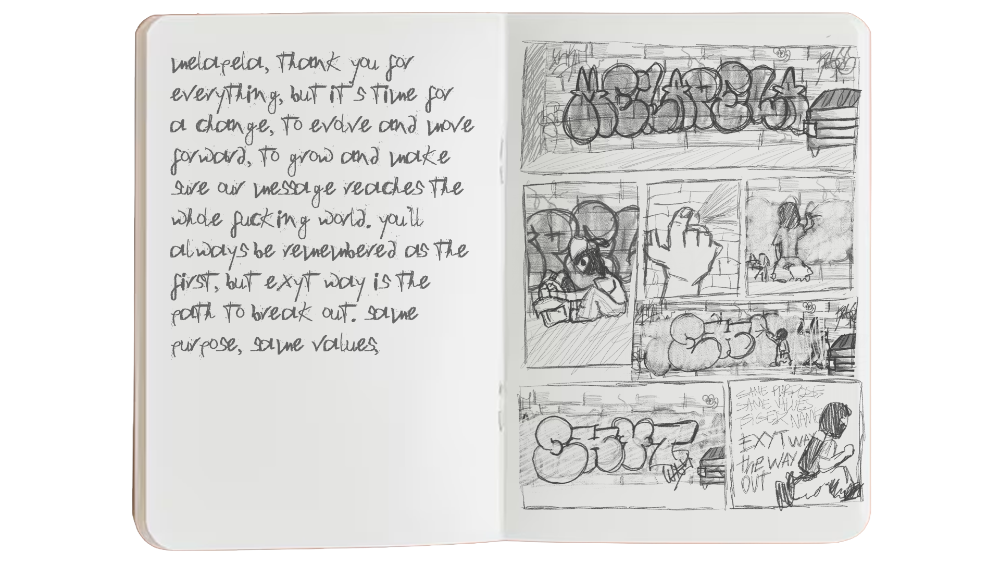 melapela, thank you for
everything, but it's time for
a change, to evolve and move
forward, to grow and make
sure our message reaches the
whole fucking world. you'll
always be remembered as the
first, but exyt way is the
path to break out. same
purpose, same values,
MELAPELA
EXYT
SAME PURPOSE
SAME VALUES
EXYT WAY
the WAY
OUT